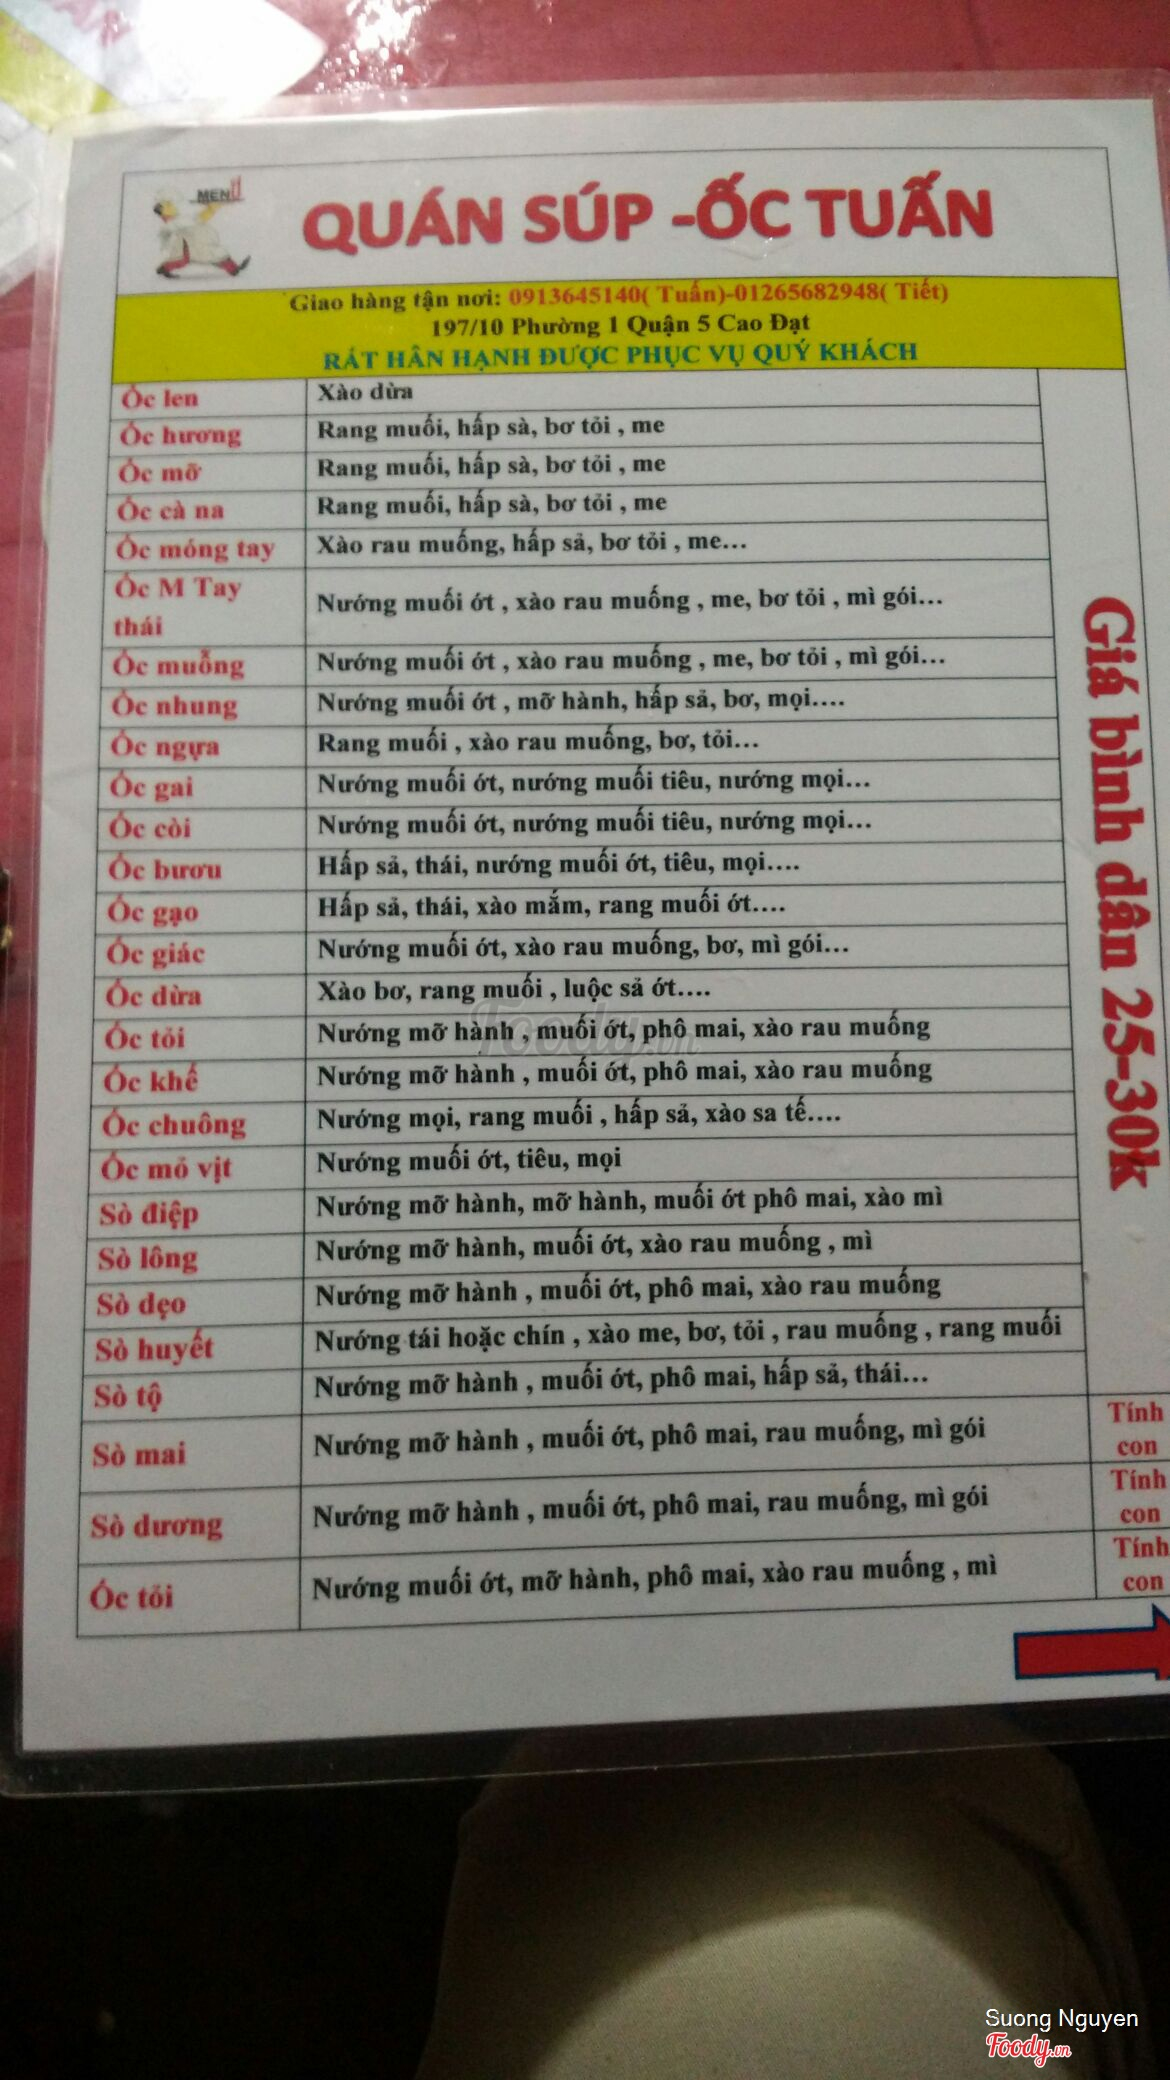 MENU
QUÁN SÚP -ỐC TUẤN
Giao hàng tận nơi: 0913645140( Tuấn)-01265682948( Tiết)
197/10 Phường 1 Quận 5 Cao Đạt
RẤT HÂN HẠNH ĐƯỢC PHỤC VỤ QUÝ KHÁCH
Ốc len Xào dừa
Ốc hương Rang muối, hấp sả, bơ tỏi , me
Ốc mỡ Rang muối, hấp sả, bơ tỏi , me
Ốc cà na Rang muối, hấp sả, bơ tỏi , me
Ốc móng tay Xào rau muống, hấp sả, bơ tỏi , me...
Ốc M Tay
thái
Nướng muối ớt , xào rau muống , me, bơ tỏi , mì gói...
Ốc muỗng Nướng muối ớt , xào rau muống , me, bơ tỏi , mì gói...
Ốc nhung Nướng muối ớt , mỡ hành, hấp sả, bơ, mọi....
Ốc ngựa Rang muối , xào rau muống, bơ, tỏi...
Ốc gai Nướng muối ớt, nướng muối tiêu, nướng mọi...
Ốc còi Nướng muối ớt, nướng muối tiêu, nướng mọi...
Ốc bươu Hấp sả, thái, nướng muối ớt, tiêu, mọi....
Ốc gạo Hấp sả, thái, xào mắm, rang muối ớt....
Ốc giác Nướng muối ớt, xào rau muống, bơ, mì gói...
Ốc dừa Xào bơ, rang muối , luộc sả ớt....
Ốc tỏi Nướng mỡ hành , muối ớt, phô mai, xào rau muống
Ốc khế Nướng mỡ hành , muối ớt, phô mai, xào rau muống
Ốc chuông Nướng mọi, rang muối , hấp sả, xào sa tế....
Ốc mỏ vịt Nướng muối ớt, tiêu, mọi
Sò điệp Nướng mỡ hành, mỡ hành, muối ớt phô mai, xào mì
Sò lông Nướng mỡ hành, muối ớt, xào rau muống , mì
Sò dẹo Nướng mỡ hành , muối ớt, phô mai, xào rau muống
Sò huyết Nướng tái hoặc chín , xào me, bơ, tỏi , rau muống , rang muối
Sò tộ Nướng mỡ hành , muối ớt, phô mai, hấp sả, thái...
Giá bình dân 25-30k
Sò mai Nướng mỡ hành , muối ớt, phô mai, rau muống, mì gói
Tính
con
Sò dương Nướng mỡ hành , muối ớt, phô mai, rau muống, mì gói
Tính
con
Ốc tỏi Nướng muối ớt, mỡ hành, phô mai, xào rau muống , mì
Tính
con
Foody.vn
Suong Nguyen
Foody.vn